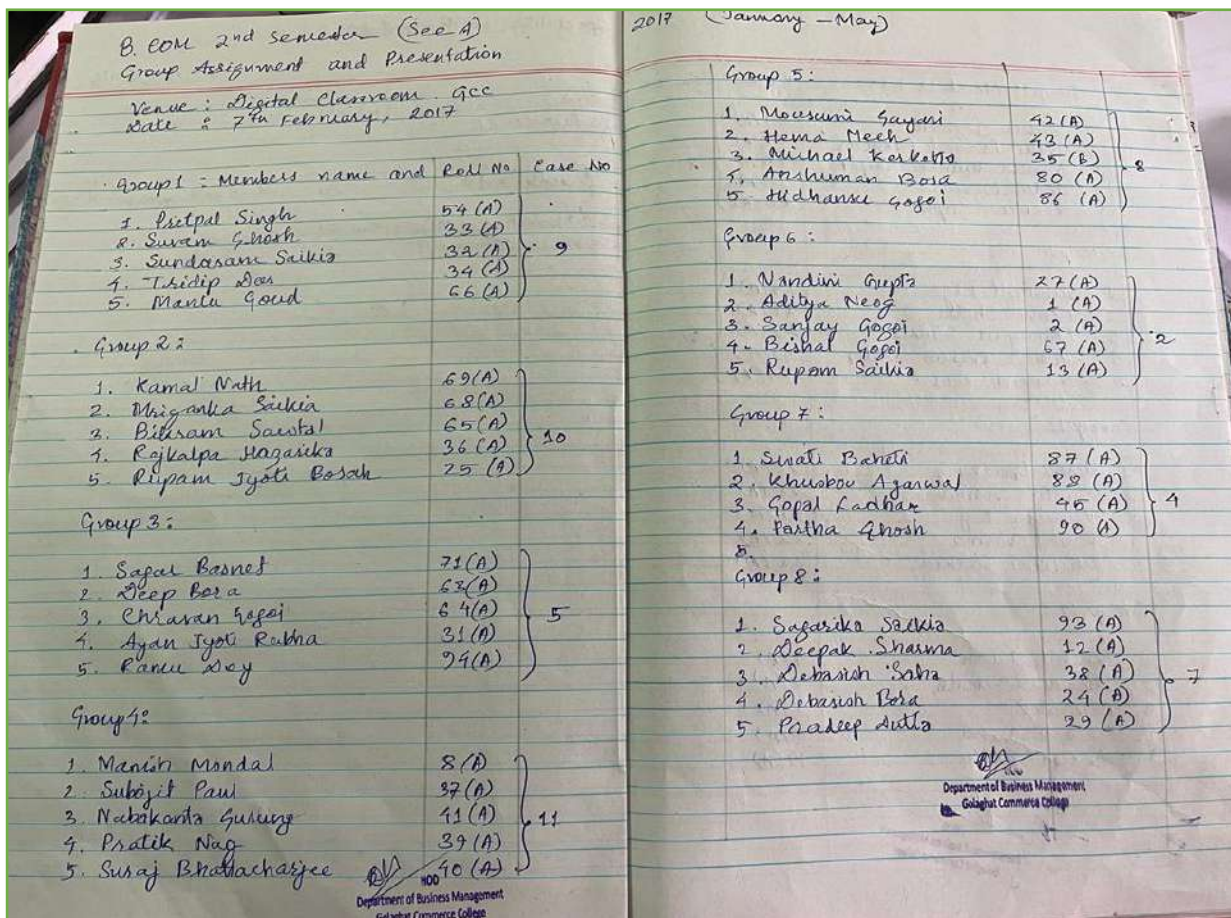 B. COM 2nd Semester (Sec A)
Group Assignment and Presentation
Venue : Digital Classroom. GCC
Date : 7th February, 2017
Group 1 : Members name and Roll No Case No
1. Pritpal Singh 54 (A)
2. Suvam Ghosh 33 (A)
3. Sundaram Saikia 32 (A) 9
4. Tridip Das 34 (A)
5. Mantu Goud 66 (A)
Group 2:
1. Kamal Nath 69(A)
2. Mriganka Saikia 68(A)
3. Bikram Saotal 65(A)
4. Rajkalpa Hazarika 36 (A) 10
5. Rupam Jyoti Borah 25 (A)
Group 3:
1. Sagar Basnet 71(A)
2. Deep Bora 63(A)
3. Gogoi 64(A) 5
4. Ayan Jyoti Rabha 31(A)
5. Dey 94(A)
Group 4:
1. Manish Mondal 8(A)
2. Subojit Paul 37(A)
3. Nabakanta Gurung 41(A) 11
4. Pratik Nag 39(A)
5. Suraj Bhattacharjee 40(A)
HOD
Department of Business Management
Golaghat Commerce College
2017 (January - May)
Group 5:
1. Mousumi Gayari 42(A)
2. Hema Mech 43(A)
3. Michael Kerketta 35(B) 8
4. Anshuman Bora 80 (A)
5. Gogoi 86 (A)
Group 6 :
1. Nandini Gupta 27(A)
2. Aditya Neog 1 (A)
3. Sanjay Gogoi 2 (A)
4. Bishal Gogoi 67 (A) 2
5. Rupam Saikia 13 (A)
Group 7 :
1. Swati Baheti 87 (A)
2. Khusboo Agarwal 88 (A)
3. Gopal Ladhar 45 (A) 4
4. Partha Ghosh 90 (A)
5.
Group 8:
1. Sagarika Saikia 93 (A)
2. Deepak Sharma 12 (A)
3. Debasish Saha 38 (A) 7
4. Debasish Bora 24 (A)
5. Pradeep Dutta 29 (A)
Department of Business Management
Golaghat Commerce College